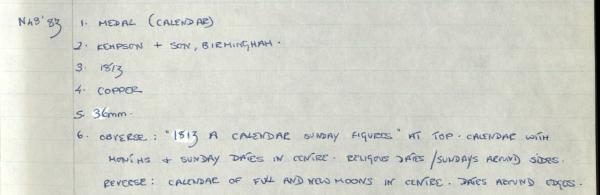 N48'83 1. MEDAL (CALENDAR)
2. KEMPSON + SON, BIRMINGHAM.
3. 1813
4. COPPER
5. 36mm.
6. OBVERSE: "1813 A CALENDAR SUNDAY FIGURES" AT TOP. CALENDAR WITH
MONTHS + SUNDAY DATES IN CENTRE. RELIGIOUS DATES / SUNDAYS AROUND SIDES.
REVERSE: CALENDAR OF FULL AND NEW MOONS IN CENTRE. DATES AROUND EDGES.